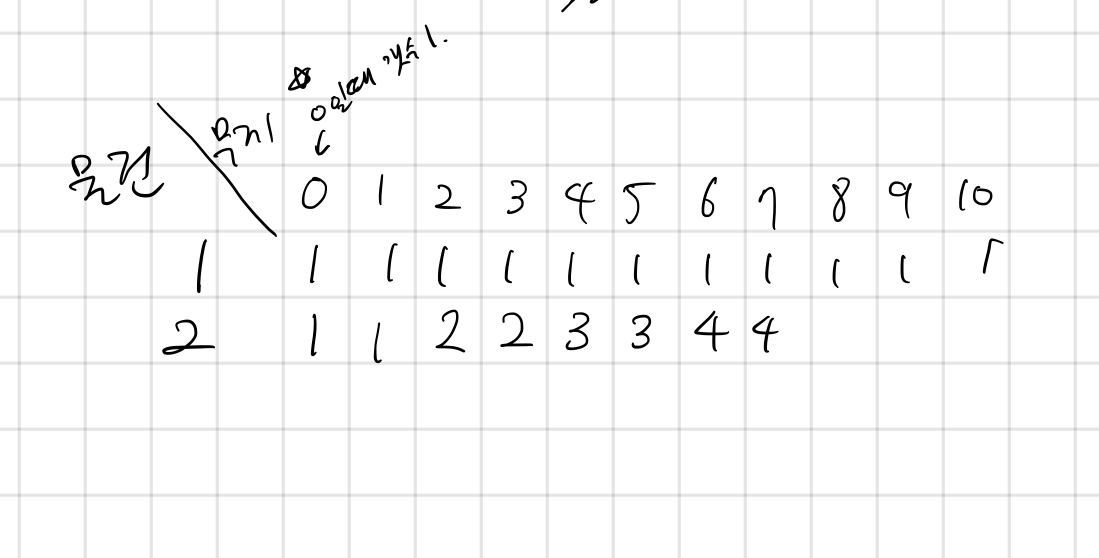 ☆ 0일때 개수 1.
물건 \ 무게
0 1 2 3 4 5 6 7 8 9 10
1 1 1 1 1 1 1 1 1 1 1 1
2 1 1 2 2 3 3 4 4